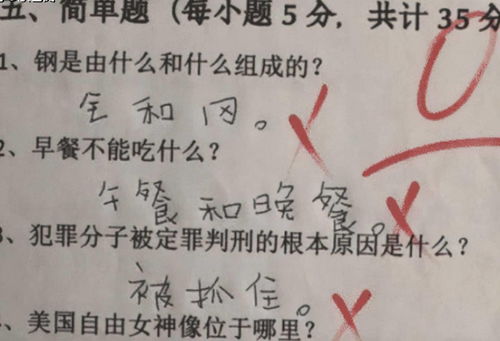 五、简单题（每小题5分，共计35分
1、钢是由什么和什么组成的？
钅和冈。
2、早餐不能吃什么？
午餐和晚餐。
3、犯罪分子被定罪判刑的根本原因是什么？
被抓住。
、美国自由女神像位于哪里？
0